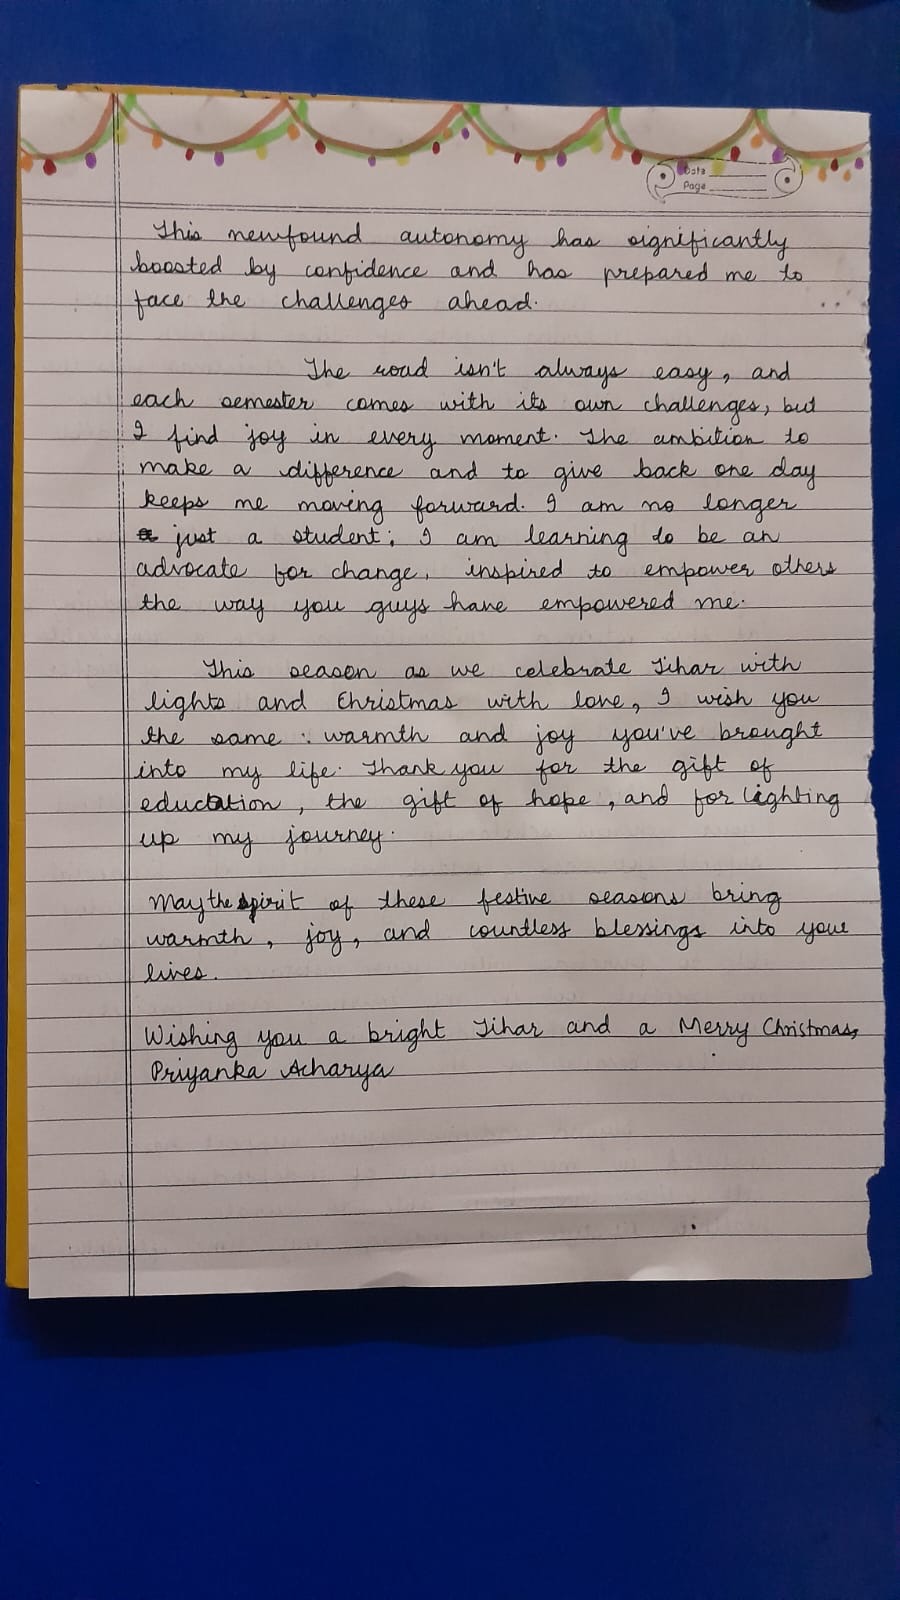 Date
Page
This newfound autonomy has significantly
boosted by confidence and has prepared me to
face the challenges ahead.
The road isn't always easy, and
each semester comes with its own challenges, but
I find joy in every moment. The ambition to
make a difference and to give back one day
keeps me moving forward. I am no longer
just a student; I am learning to be an
advocate for change, inspired to empower others
the way you guys have empowered me.
This season as we celebrate Tihar with
lights and Christmas with love, I wish you
the same : warmth and joy you've brought
into my life. Thank you for the gift of
education, the gift of hope, and for lighting
up my journey.
May the spirit of these festive seasons bring
warmth, joy, and countless blessings into your
lives.
Wishing you a bright Tihar and a Merry Christmas,
Priyanka Acharya